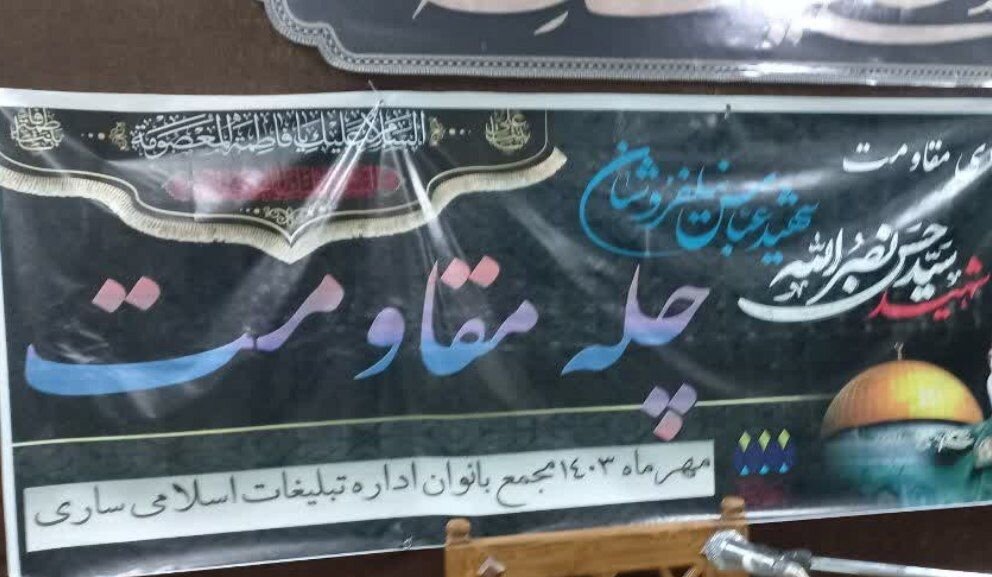 السلام علیک یا فاطمة المعصومة
ری مقاومت
شهید عباس نیلفروشان
شهید سید حسن نصرالله
چله مقاومت
مهر ماه ۱۴۰۳ مجمع بانوان اداره تبلیغات اسلامی ساری